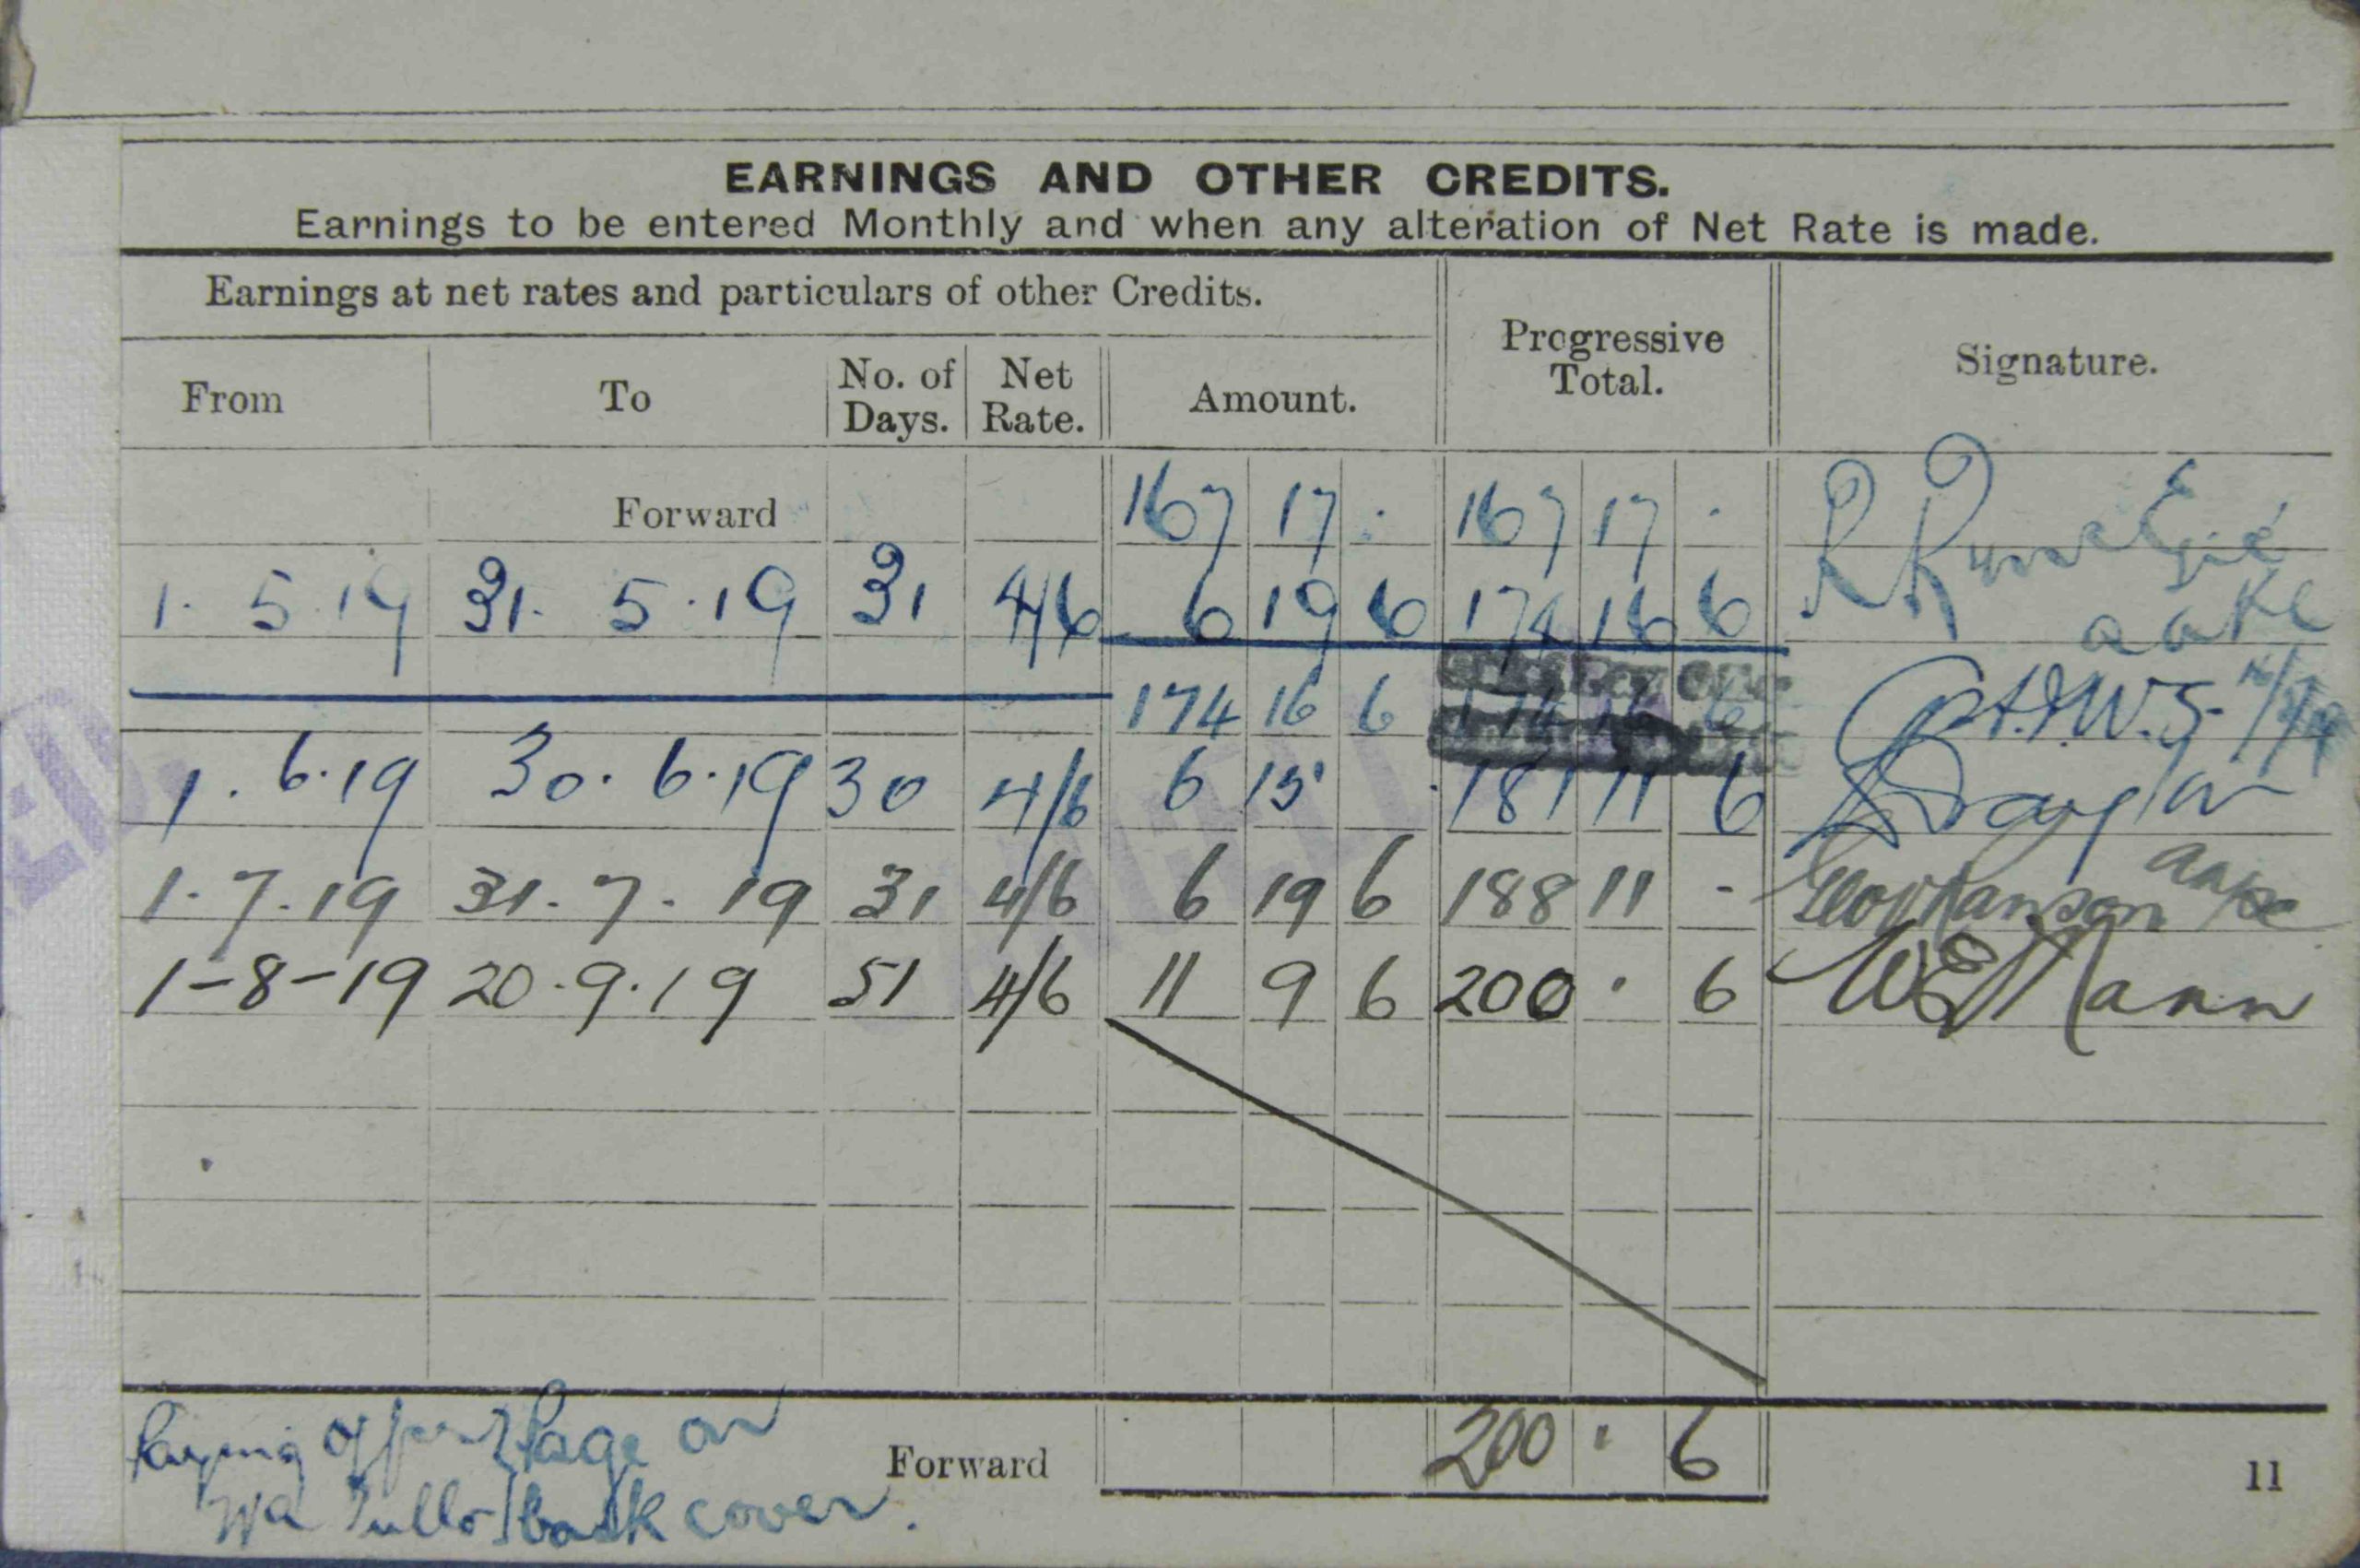 EARNINGS AND OTHER CREDITS.
Earnings to be entered Monthly and when any alteration of Net Rate is made.
Earnings at net rates and particulars of other Credits.
Progressive Total.
Signature.
From To No. of Days. Net Rate. Amount.
Forward 167 17 . 167 17 .
1. 5. 19 31. 5. 19 31 4/6 6 19 6 174 16 6
174 16 6 174 16 6
1. 6. 19 30. 6. 19 30 4/6 6 15 . 181 11 6
1. 7. 19 31. 7. 19 31 4/6 6 19 6 188 11 -
1-8-19 20. 9. 19 51 4/6 11 9 6 200 . 6 W E Mann
Page on
back cover.
Forward 200 . 6
11